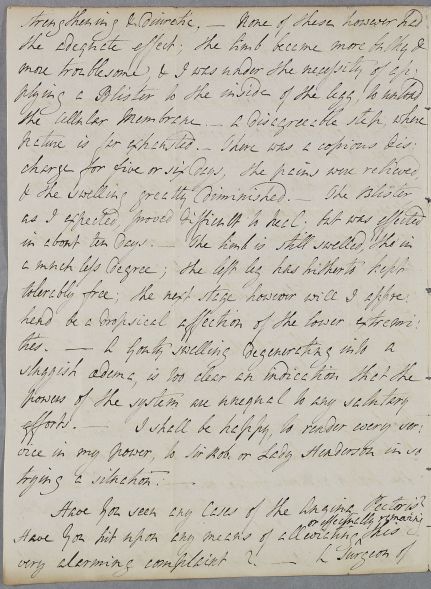 strengthening & diuretic. — None of these however had
the adequate effect; the limb became more bulky &
more troublesome, & I was under the necessity of ap:
plying a Blister to the inside of the leg, to unload
the cellular Membrane. — a disagreeable step, where
Nature is far exhausted. — There was a copious dis:
charge for five or six Days, the pains were relieved,
& the swelling greatly diminished. — The Blister
as I expected, proved difficult to heal: but was effected
in about ten Days. — The limb is still swelled, tho in
a much less degree; the left leg has hitherto kept
tolerably free; the next stage however will I appre:
hend be a dropsical affection of the lower extremi:
ties. — A Gouty swelling degenerating into a
sluggish œdema, is too clear an indication that the
powers of the system are unequal to any salutary
efforts. — I shall be happy, to render every ser:
vice in my power, to Sir Rob. or Lady Henderson in so
trying a situation. —
Have you seen any Cases of the Angina Pectoris?
or effectually removing
Have you hit upon any means of alleviating this
very alarming complaint? — A Surgeon of